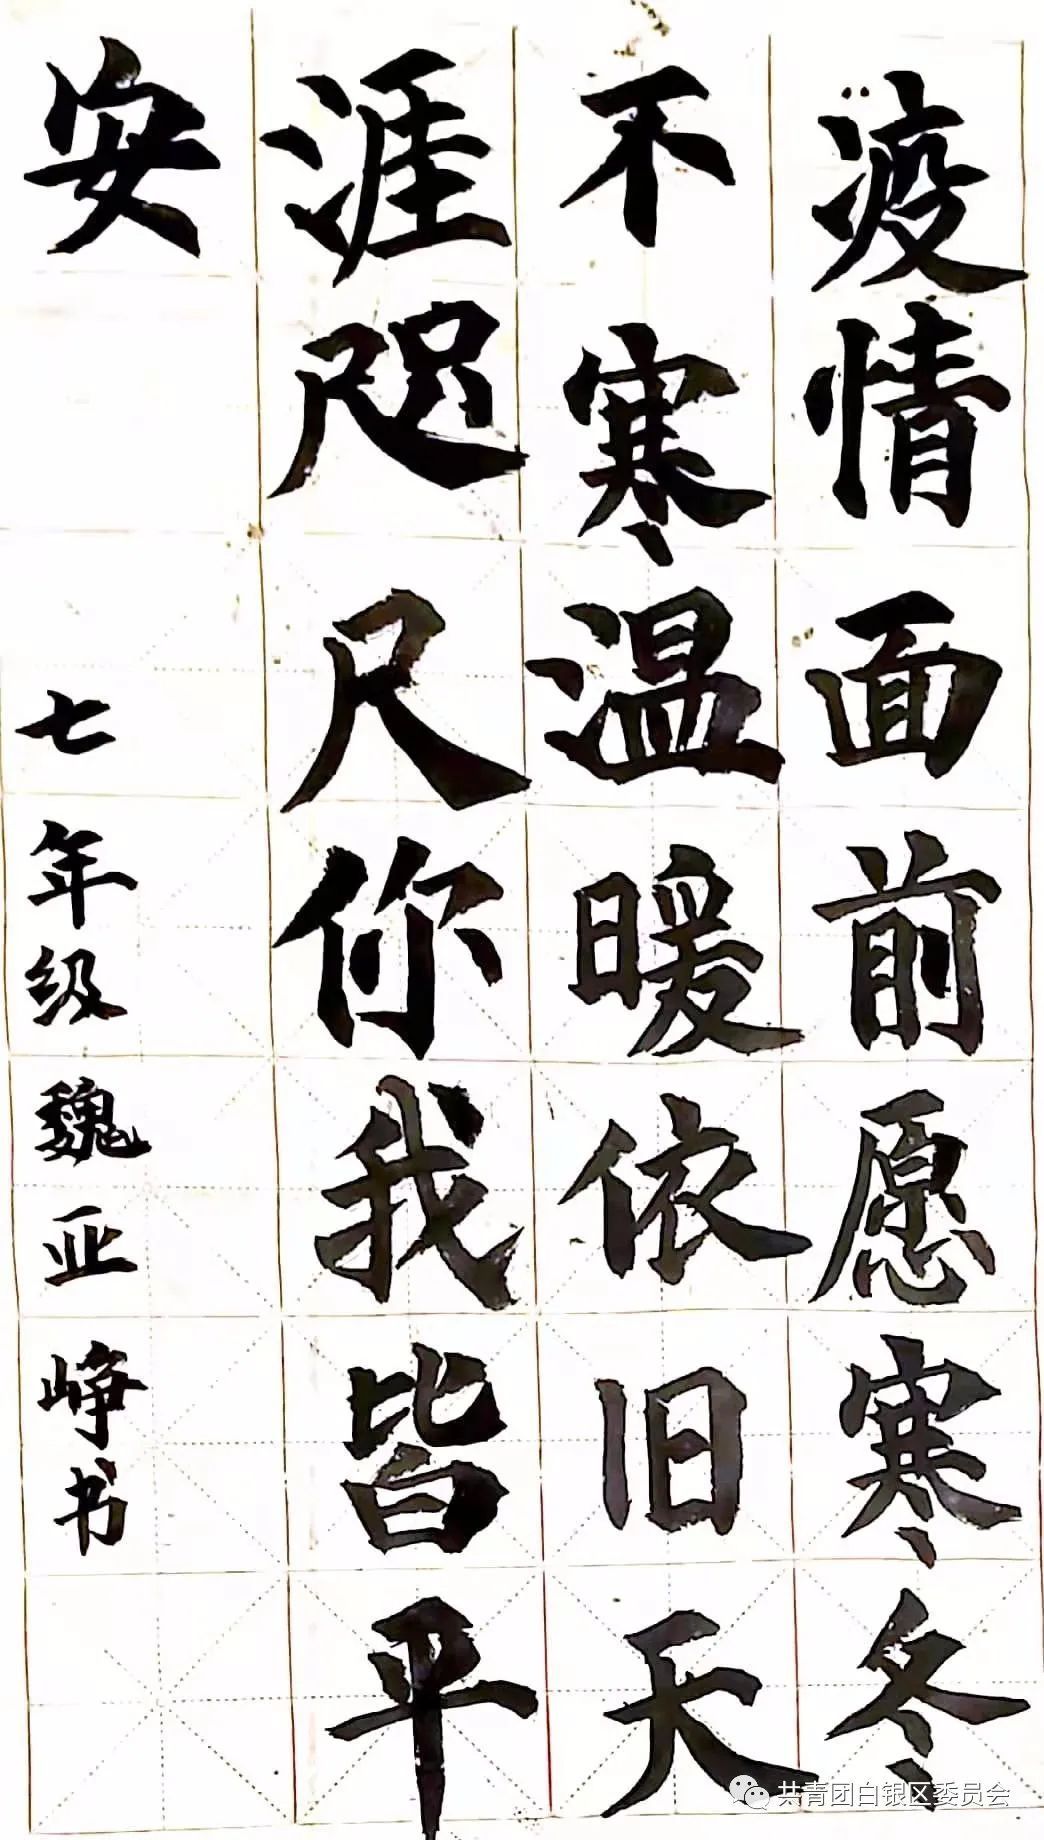 疫情面前愿寒冬
不寒温暖依旧天
涯咫尺你我皆平
安
七年级魏亚峥书
共青团白银区委员会